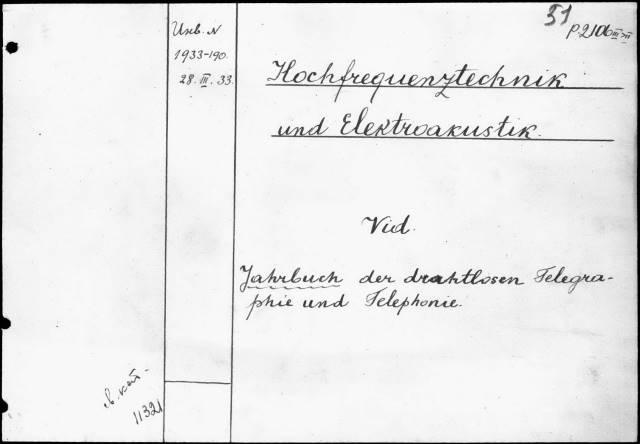 51
P2106 III-VI
Инв. N
1933-190.
28. III. 33.
Hochfrequenztechnik
und Elektroakustik.
Vid.
Jahrbuch der drahtlosen Telegra-
phie und Telephonie.
кат-
11321